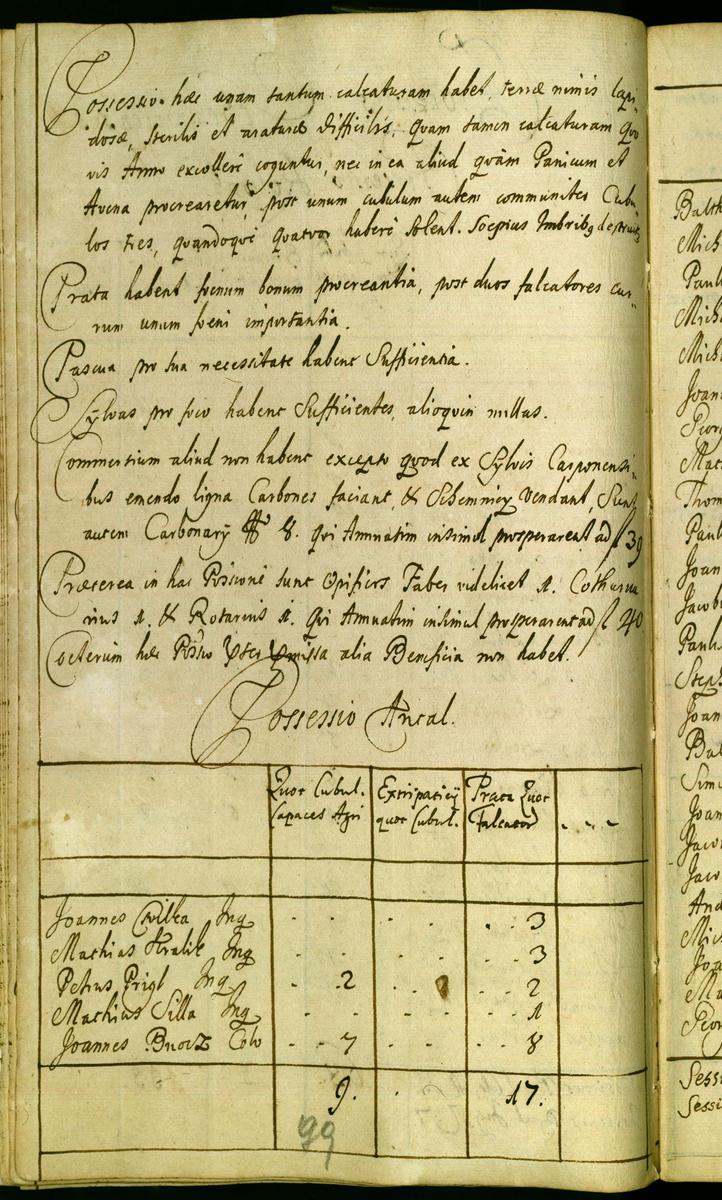 Possessio hæc unam tantum calcaturam habet, terræ nimis lapi-
dosæ, sterilis et araturæ difficilis, quam tamen calcaturam quo
vis Anno excollere coguntur, nec in ea aliud quàm Panicum et
Avena procrearetur, post unum cubulum autem communiter Cubu
los tres, quandoque quatvor habere solent. Soepius Imbribg
Prata habent foenum bonum procreantia, post duos falcatores cur-
rum unum foeni importantia.
Pascua pro sua necessitate habent Sufficientia.
Sÿlvas pro foco habent Sufficientes, alioquin nullas.
Commertium aliud non habent excepto quod ex Sÿlvis Carponensi-
bus emendo ligna Carbones faciant, & Schemniczÿ vendant, Sunt
autem Carbonarÿ 8. qvi Annuatim insimul prosperarent ad f 39
Præterea in hac Possione sunt Opifices Faber videlicet 1. Cothurna
rius 1. & Rotarius 1. qvi Annuatim insimul prosperarent ad f 40
Coeterum hæc Possio missa alia Beneficia non habet.
Possessio Antal.
Quot Cubul. Extirpatitÿ Prata Quot
Capaces Agri quot Cubul. Falcator - - -
Joannes Cvilka Inq - - - - - - 3
Mathias Kralik Inq - - - - - - 3
Petrus Prigl Inq - 2 - - - - 2
Mathias Silla Inq - - - - - - 1
Joannes Colo - - 7 - - - - 8
9. - 17.
99
Balth
Mich
Paul
Mich
Mich
Joan
Geor
Mat
Thom
Paul
Joan
Jacob
Paul
Steph
Joan
Bal
Sim
Joan
Jaco
Jaco
And
Mic
Joa
Ma
Geor
Sessi
Sessi